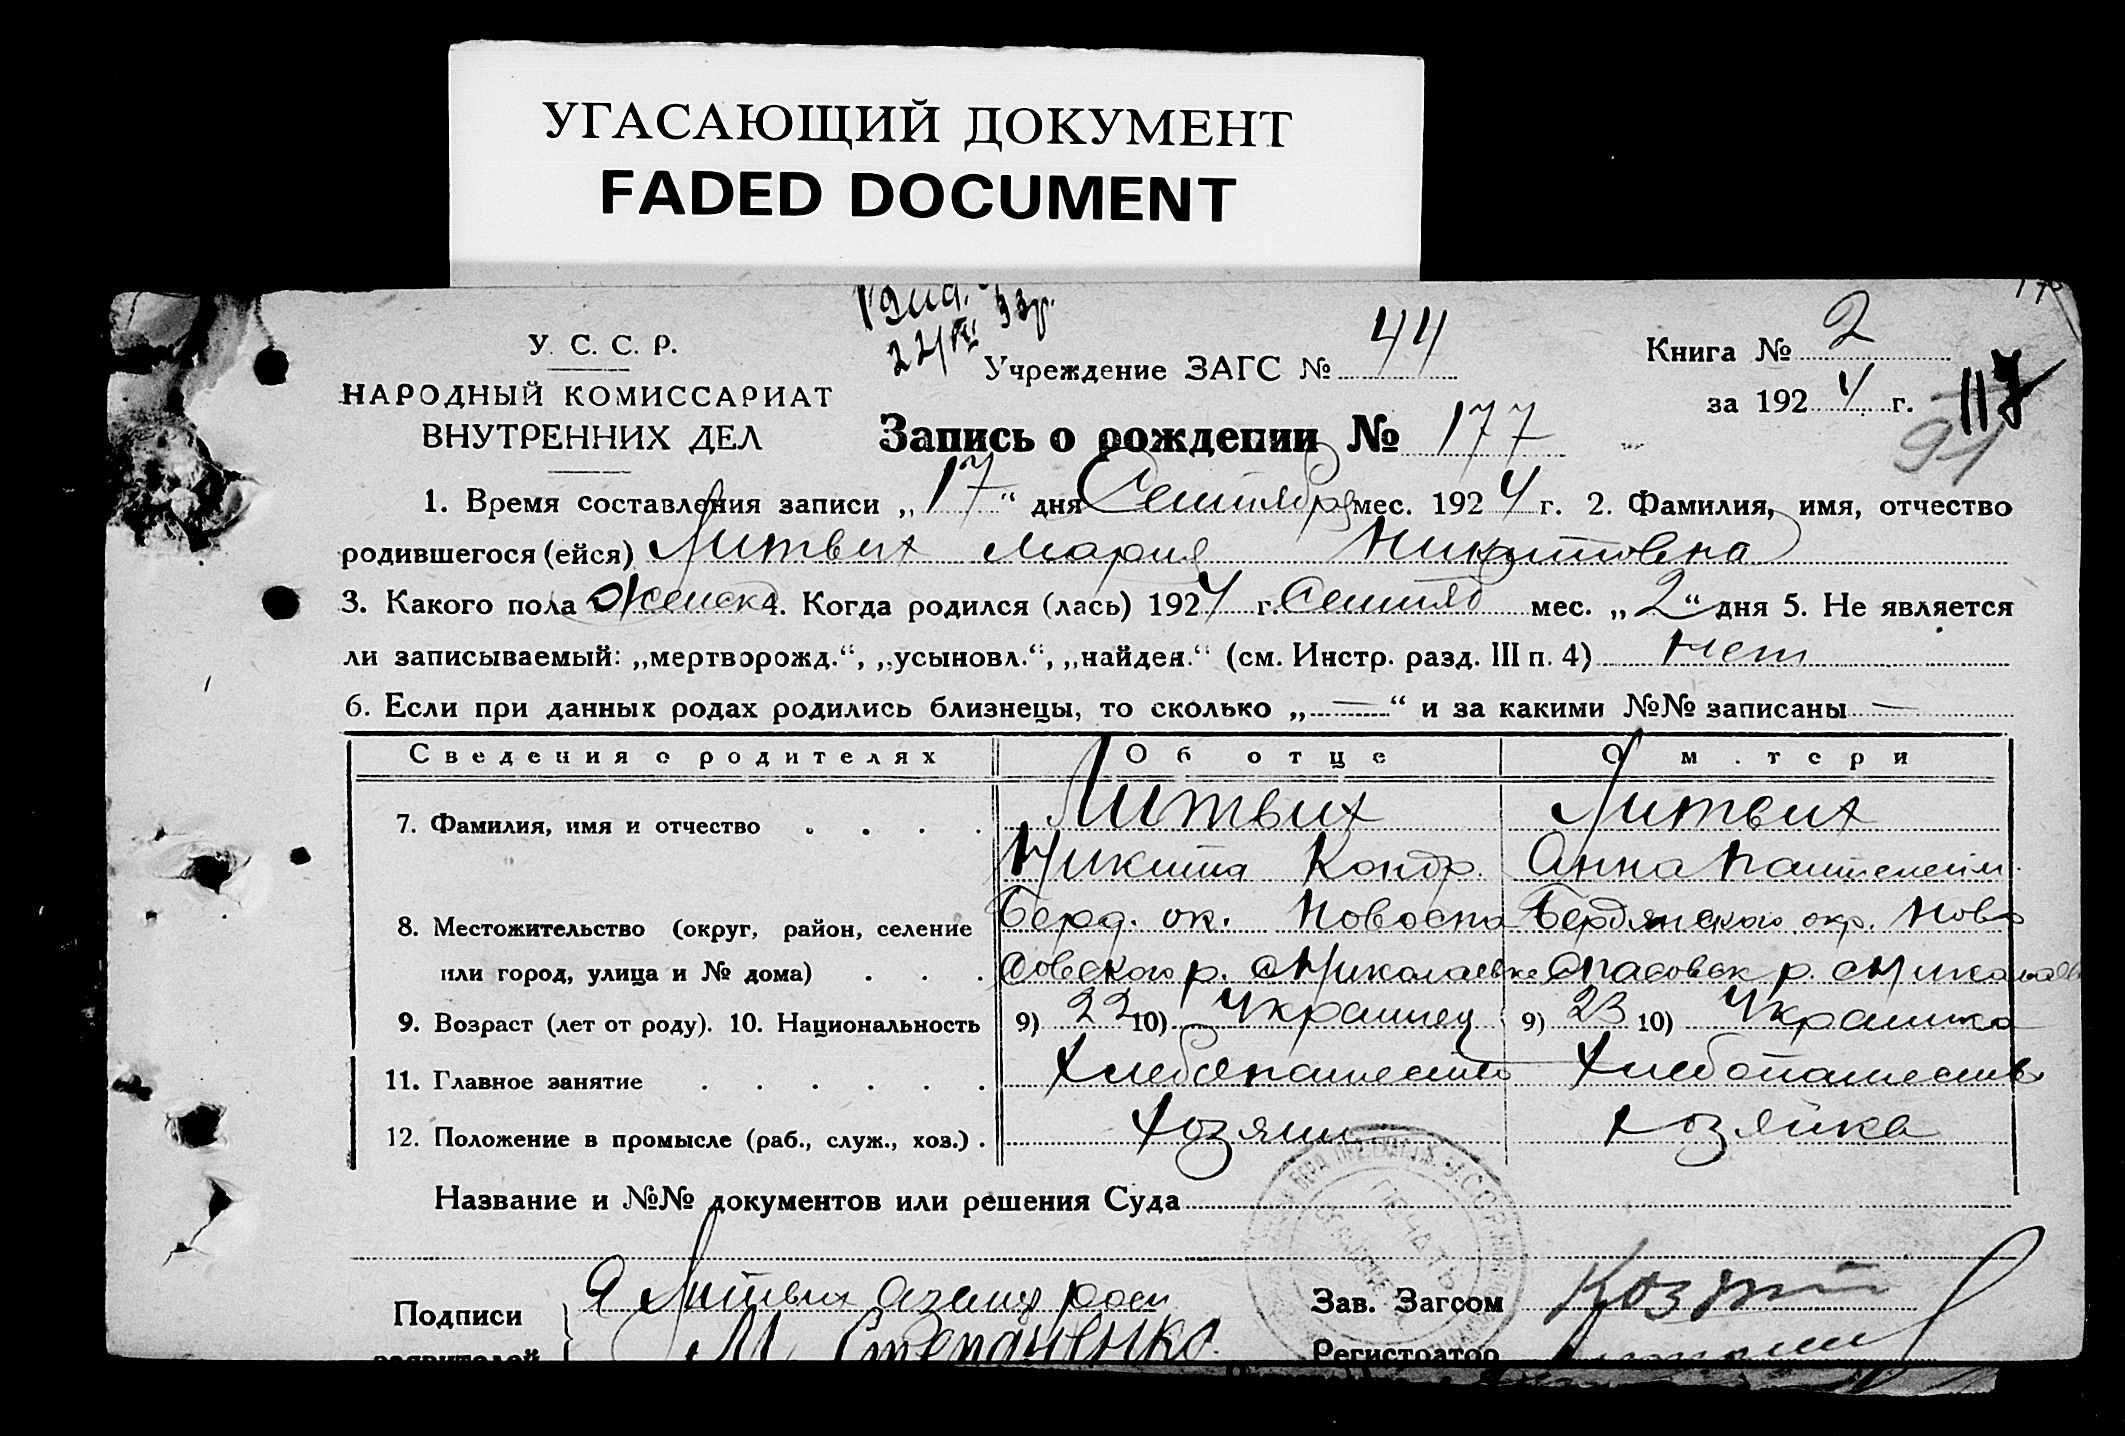 УГАСАЮЩИЙ ДОКУМЕНТ
FADED DOCUMENT
У. С. С. Р.
НАРОДНЫЙ КОМИССАРИАТ
ВНУТРЕННИХ ДЕЛ
Учреждение ЗАГС № 44
Книга № 2
за 1924 г.
117
91
Запись о рождении № 177
1. Время составления записи „17“ дня Сентября мес. 1924 г. 2. Фамилия, имя, отчество
родившегося (ейся) Литвин Мария Никитовна
3. Какого пола Женск 4. Когда родился (лась) 1924 г. Сентяб мес. „2“ дня 5. Не является
ли записываемый: „мертворожд.“, „усыновл.“, „найден.“ (см. Инстр. разд. III п. 4) Нет
6. Если при данных родах родились близнецы, то сколько „—“ и за какими №№ записаны —
Сведения о родителях Об отце О м.тери
7. Фамилия, имя и отчество Литвин Литвин
Никита Кондр. Анна Пантелейм.
8. Местожительство (округ, район, селение Берд. ок. Новоспа Бердянского окр. Ново
или город, улица и № дома) совского р. с Николаевке Спасовск р. с Николаев
9. Возраст (лет от роду). 10. Национальность 9) 22 10) Украинец 9) 23 10) Украинка
11. Главное занятие Хлебопашество Хлебопашество
12. Положение в промысле (раб., служ., хоз.) Хозяин Хозяйка
Название и №№ документов или решения Суда
Подписи Я Литвин
заявителей М Степаненко
Зав. Загсом
Регистратор